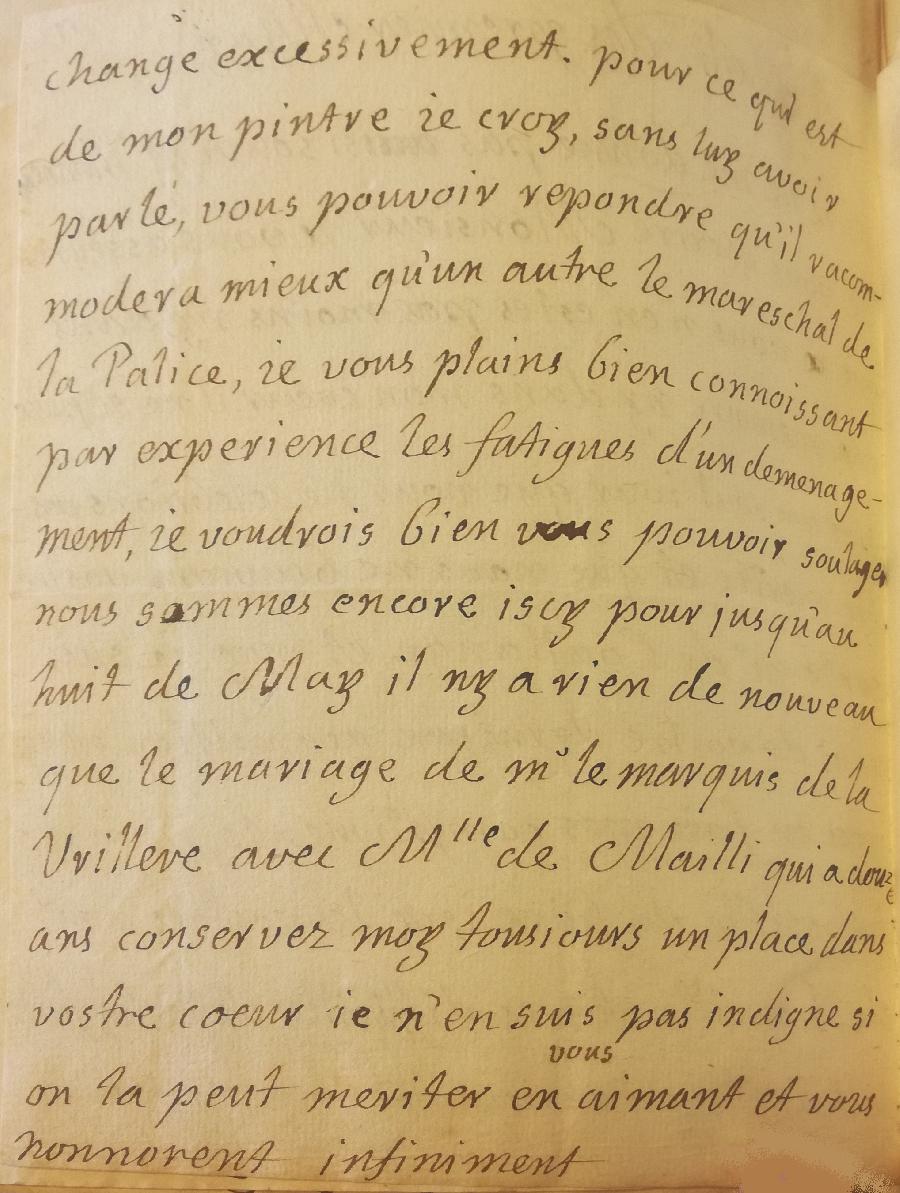 changé excessivement. pour ce qui est
de mon pintre ie croy, sans luy avoir
parlé, vous pouvoir repondre qu'il racom-
modera mieux qu'un autre le mareschal de
la Palice, ie vous plains bien connoissant
par experience les fatigues d'un demenage-
ment, ie voudrois bien vous pouvoir soulager
nous sommes encore iscy pour jusqu'au
huit de May il ny a rien de nouveau
que le mariage de mr le marquis de la
Vrillere avec Mlle de Mailli qui a douze
ans conservez moy tousiours un place dans
vostre coeur ie n'en suis pas indigne si
on la peut meriter en vous aimant et vous
honnorent infiniment